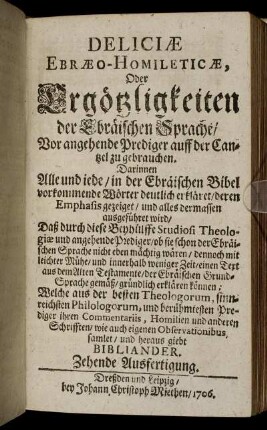 DELICIÆ
EBRÆO-HOMILETICÆ,
Oder
Ergötzligkeiten
der Ebräischen Sprache/
Vor angehende Prediger auff der Can-
tzel zu gebrauchen.
Darinnen
Alle und iede/ in der Ebräischen Bibel
vorkommende Wörter deutlich erkläret/ deren
Emphasis gezeiget/ und alles dermassen
ausgeführet wird/
Daß durch diese Beyhülffe Studiosi Theolo-
giæ und angehende Prediger/ ob sie schon der Ebräi-
schen Sprache nicht eben mächtig wären/ dennoch mit
leichter Mühe/ und innerhalb weniger Zeit/ einen Text
aus dem Alten Testamente/ der Ebräischen Grund-
Sprache gemäß/ gründlich erklären können;
Welche aus der besten Theologorum, sinn-
reichsten Philologorum, und berühmtesten Pre-
diger ihren Commentariis, Homilien und anderen
Schrifften/ wie auch eigenen Observationibus,
samlet/ und heraus giebt
BIBLIANDER.
Zehende Ausfertigung.
Dreßden und Leipzig/
bey Johann Christoph Miethen/ 1706.